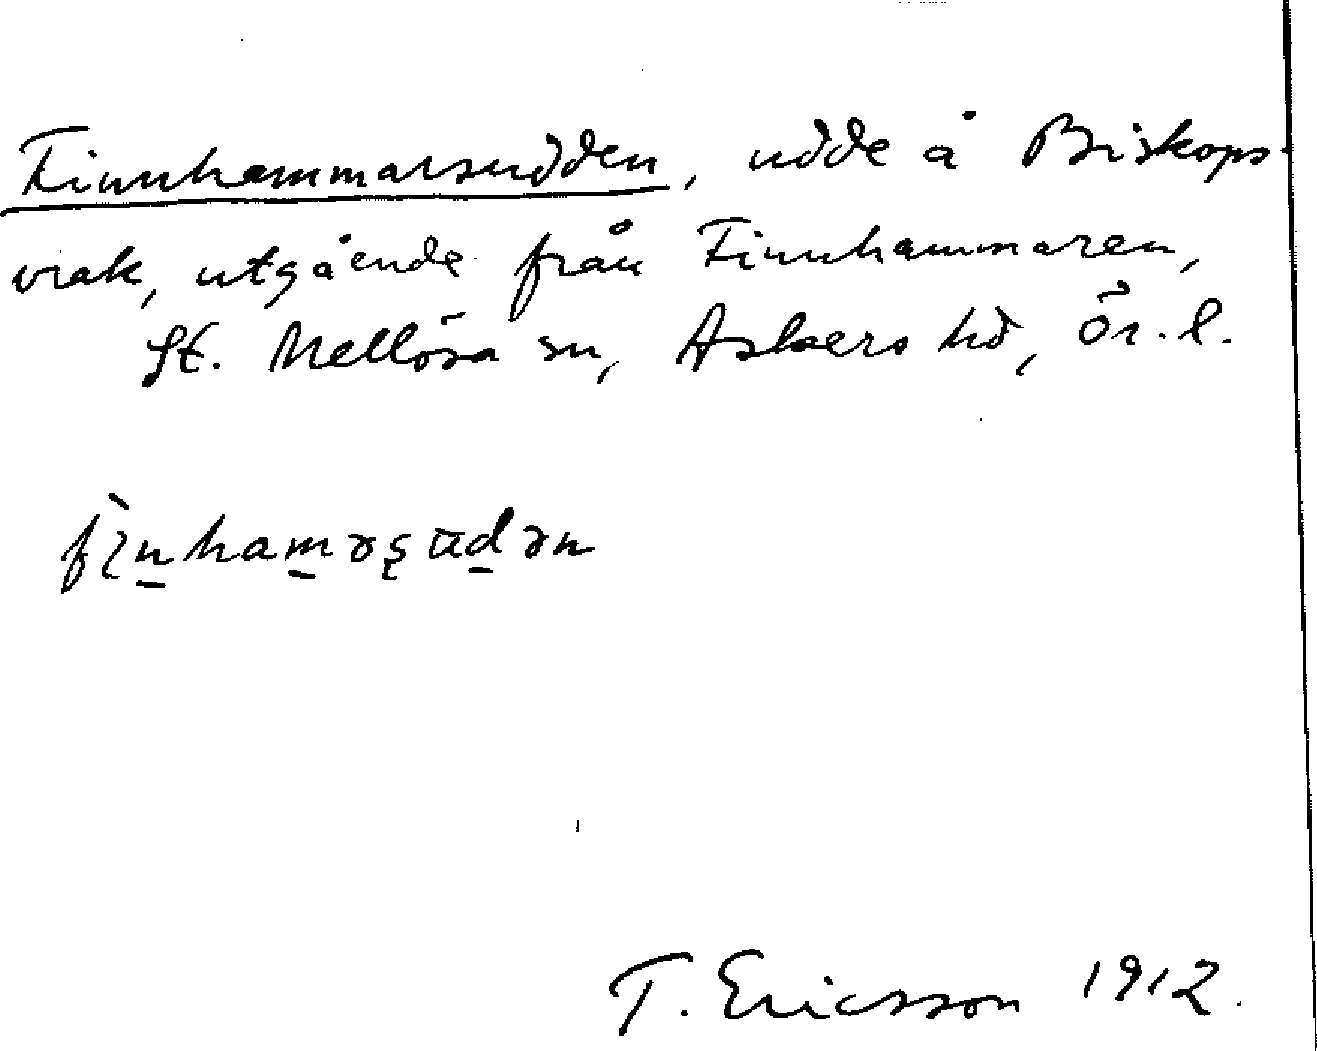 Finnhammarsudden, udde å Biskops-
vrak, utgående från Finnhammaren,
St. Mellösa sn, Askers hd, Ör. l.
fìn̲ham̲əʂud̲ən
T. Ericsson 1912.